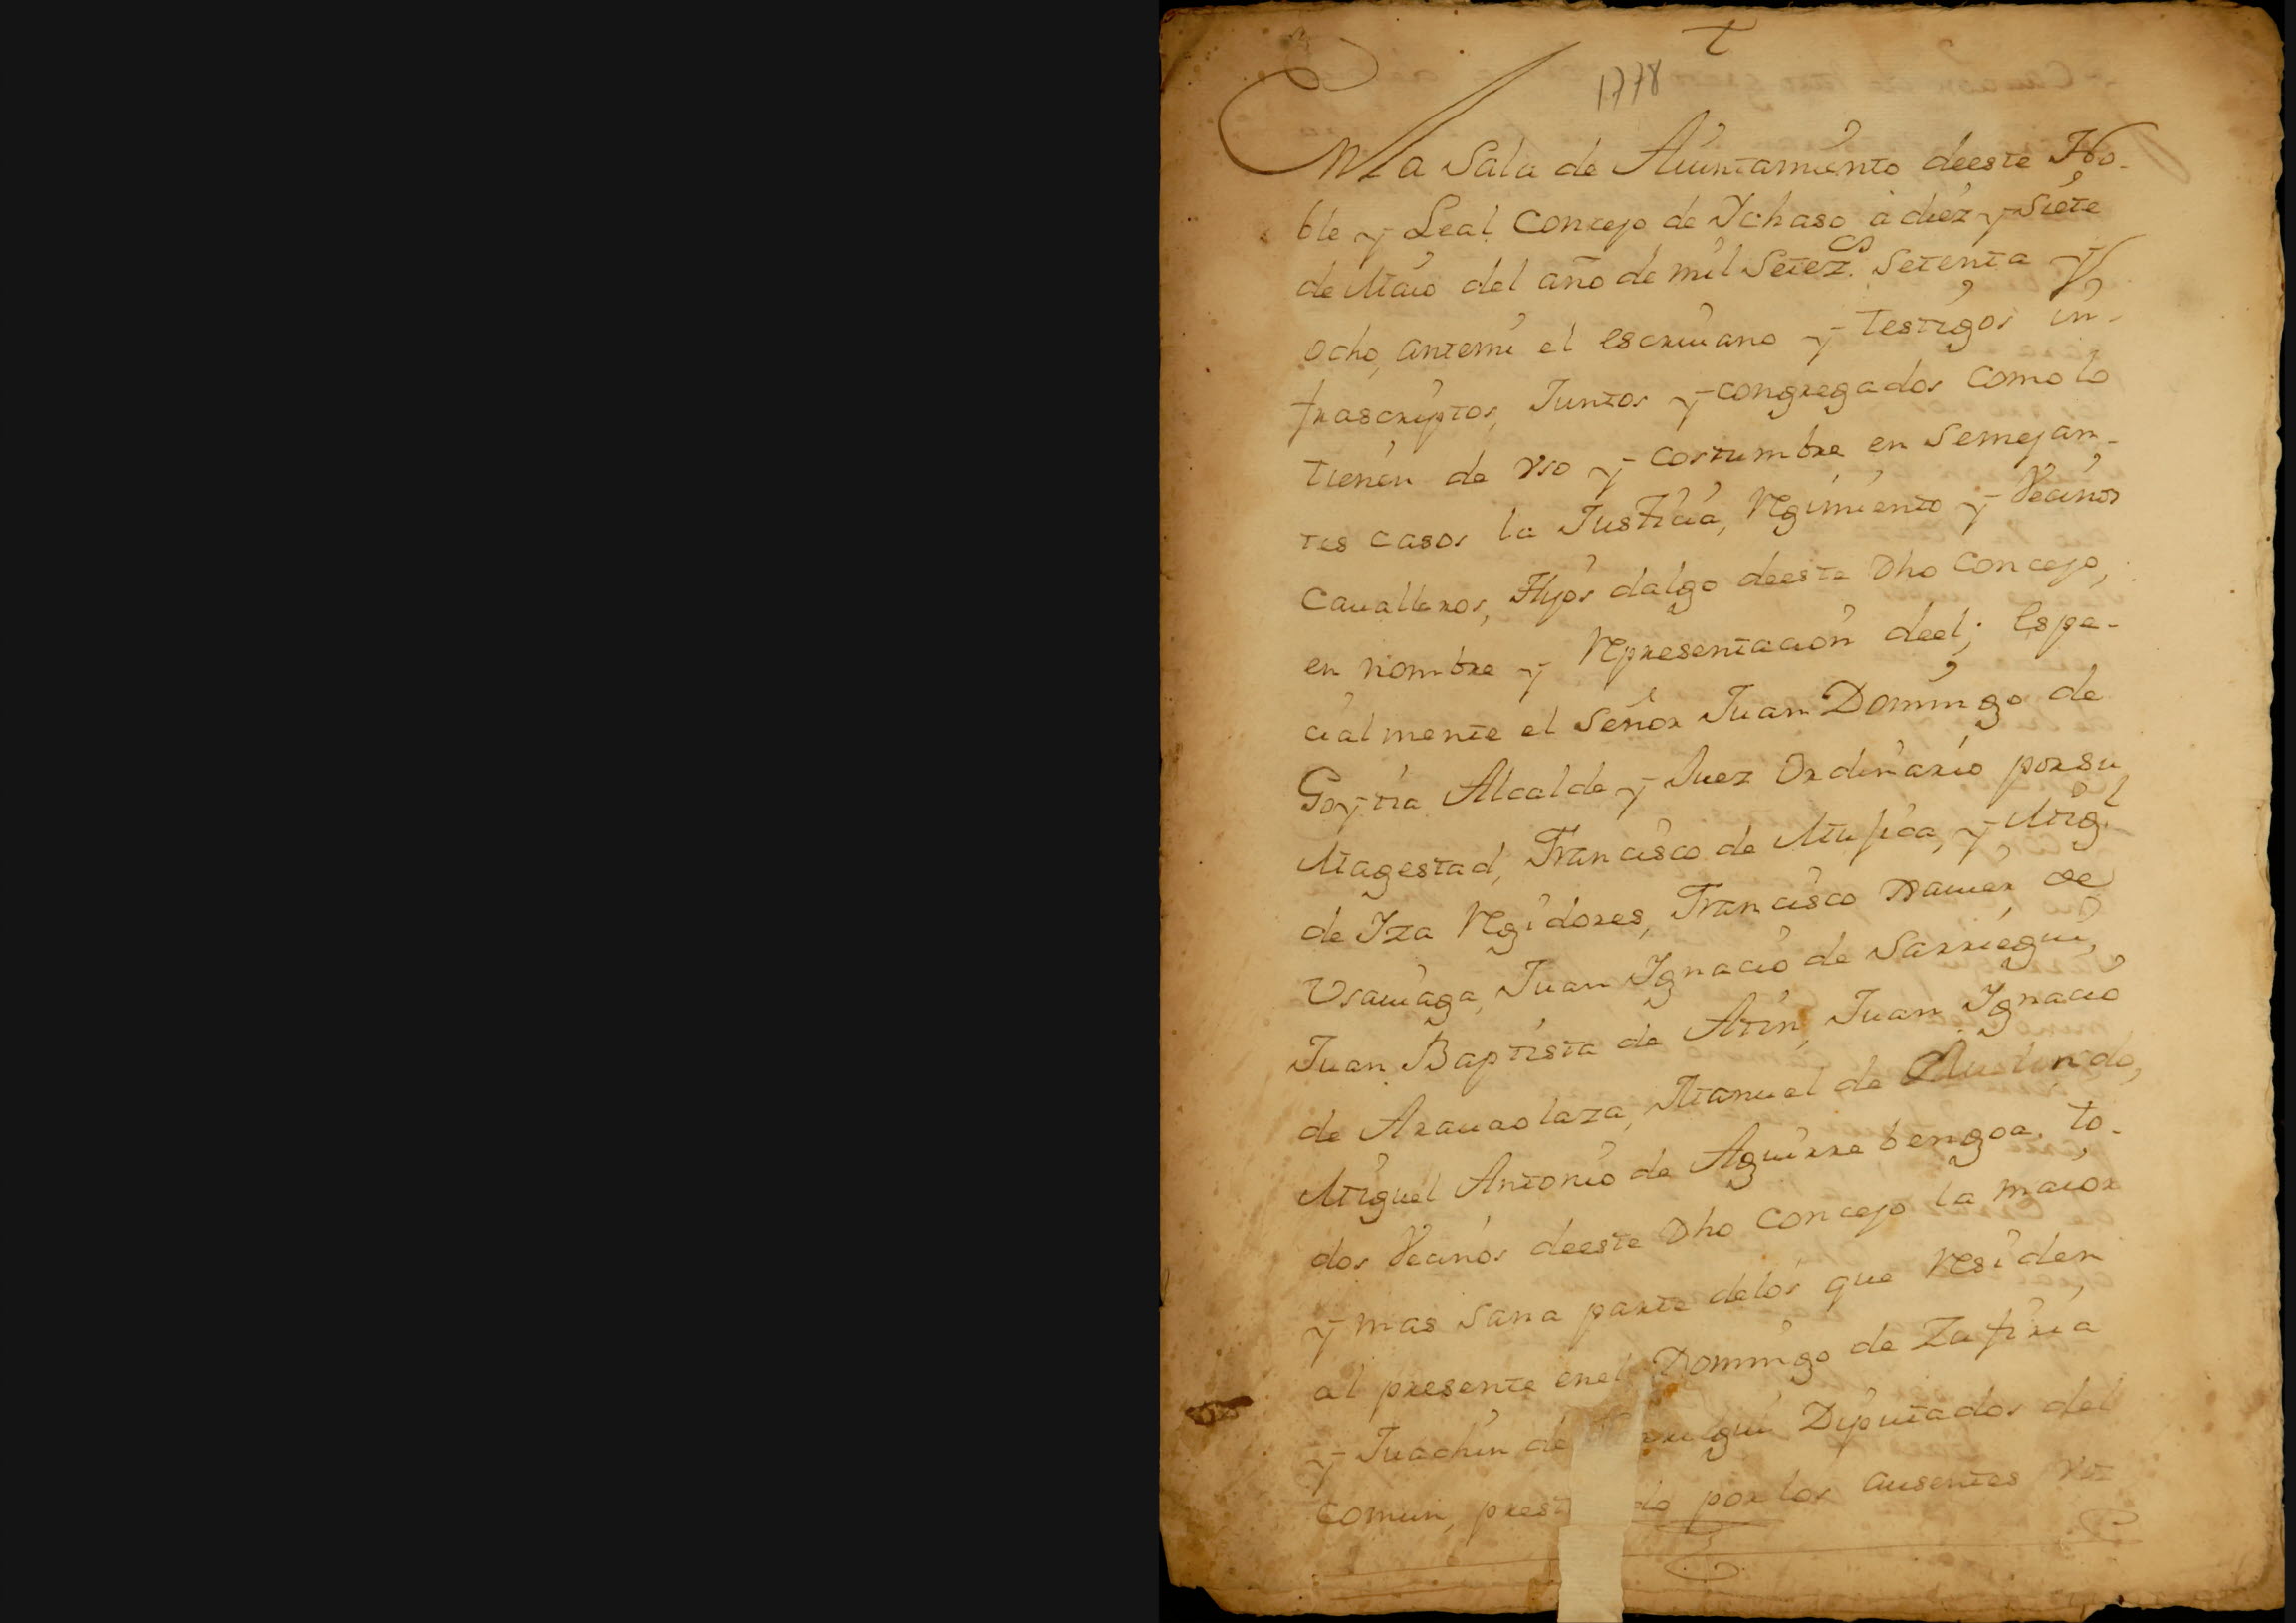 t
1778
En la Sala de Aiuntamiento deeste No-
ble y Leal Concejo de Ychaso à diez y Siete
de Maio del año de mil Setez.os Setenta y
ocho, antemi el escriuano y Testigos in-
frascriptos, Juntos y congregados como lo
tienen de vso y costumbre en Semejan-
tes casos la Justicia, Regimiento y Vecinos
Caualleros, Hijos dalgo deeste Dho Concejo,
en nombre y Representacion deel; Espe-
cialmente el Señor Juan Domingo de
Goytia Alcalde y Juez Ordinario porsu
Magestad, Francisco de Mujica, y Mig.l
de Iza Regidores, Francisco Xauier de
Vrauiaga, Juan Ignacio de Sarriegui,
Juan Baptista de Atin, Juan Ignacio
de Arauaolaza, Manuel de
Miguel Antonio de Aguirrebengoa, to-
dos Vecinos deeste Dho Concejo la maior
y mas Sana parte delos que Residen
al presente enel Domingo de Zufiria
y Juachin de Diputados del
Comun, prest do por los ausentes Voz